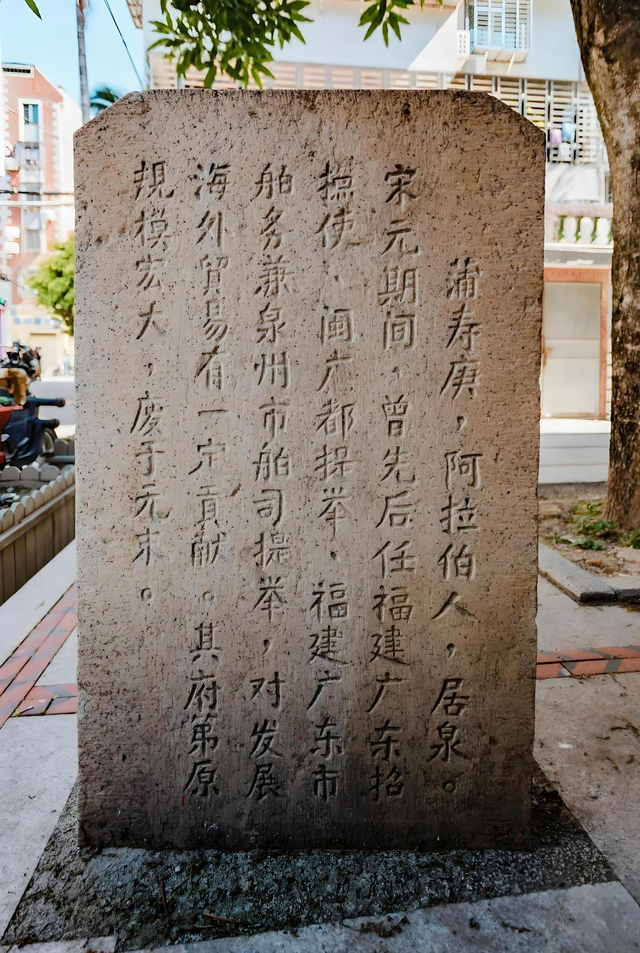 蒲寿庚，阿拉伯人，居泉。
宋元期间，曾先后任福建广东招
撫使、闽广都提举、福建广东市
舶务兼泉州市舶司提举，对发展
海外貿易有一定貢献。其府第原
規模宏大，废于元末。